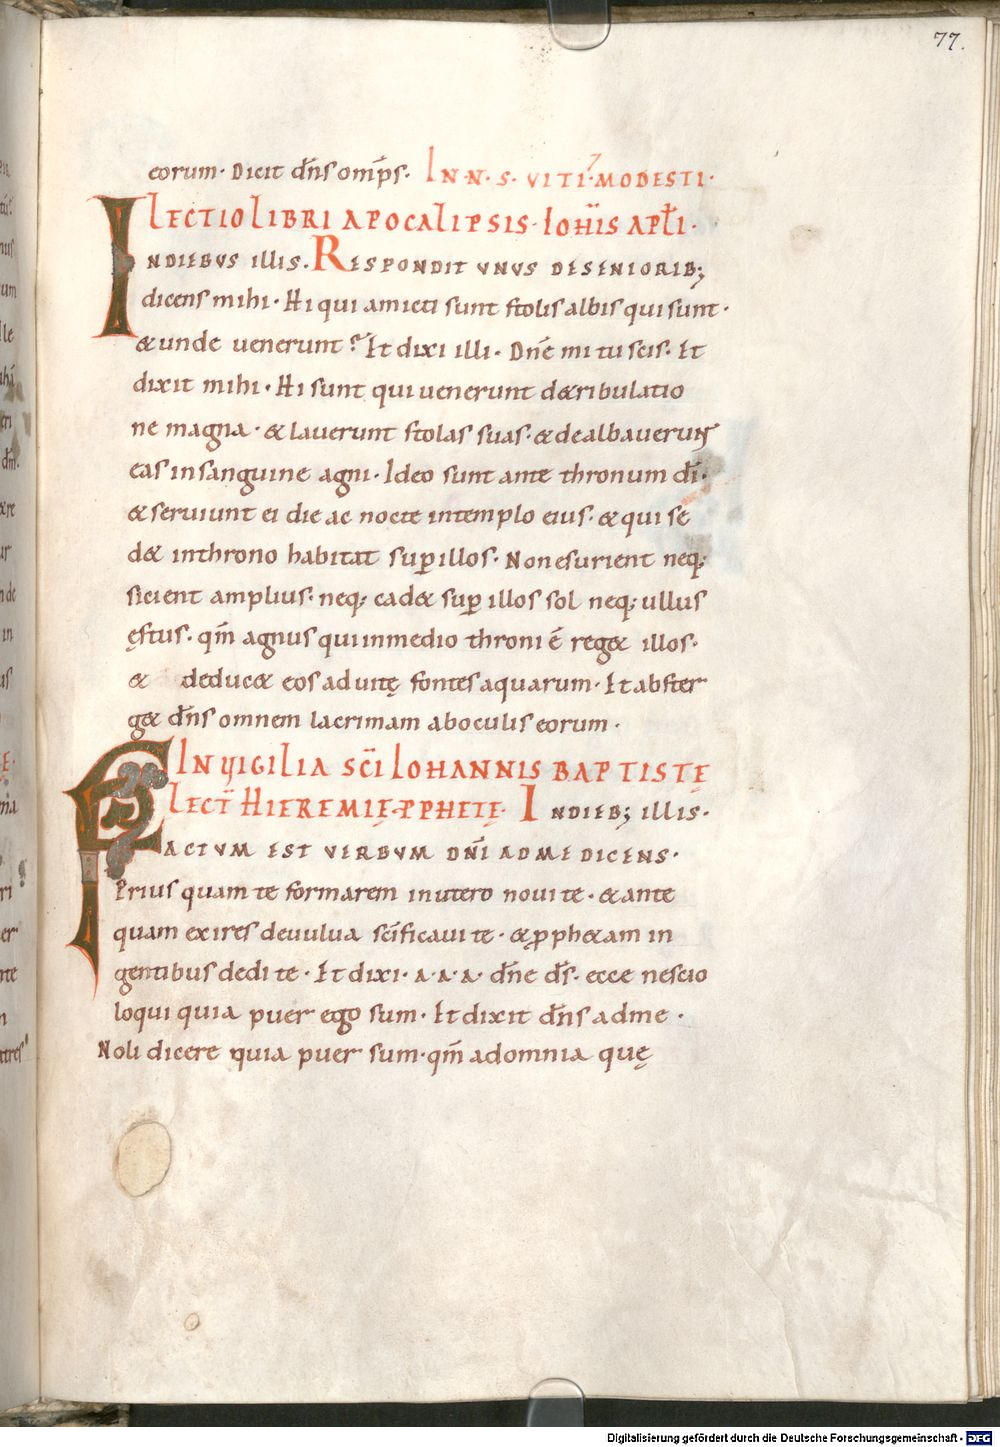 77.
eorum. Dicit dn̄s omp̄s. IN N. S. VITI. MODESTI.
LECTIO LIBRI APOCALIPSIS IOH̄IS APL̄I.
IN DIEBUS illis. RESPONDIT UNUS DE SENIORIB;
dicens mihi. Hi qui amicti sunt stolis albis qui sunt.
& unde venerunt? Et dixi illi. Dn̄e mi tu scis. Et
dixit mihi. Hi sunt qui uenerunt de tribulatio
ne magna. & laverunt stolas suas. & dealbaverunt
eas in sanguine agni. Ideo sunt ante thronum dī.
& serviunt ei die ac nocte in templo eius. & qui se
d& in throno habitat sup̄ illos. Non esurient neq;
sicient amplius. neq; cad& sup̄ illos sol neq; ullus
ęstus. qm̄ agnus qui in medio throni ē reg& illos.
& deduc& eos ad uitę fontes aquarum. Et abster
g& dn̄s omnem lacrimam ab oculis eorum.
IN VIGILIA SC̄I IOHANNIS BAPTISTĘ
LECT̄ HIEREMIĘ PPHETĘ. IN DIEB; illis.
FACTUM EST VERBUM DN̄I AD ME DICENS.
Prius quam te formarem in utero novi te. & ante
quam exires de vulva sc̄ificavi te. & pph&am in
gentibus dedi te. Et dixi. A. A. A. dn̄e ds̄. ecce nescio
loqui quia puer ego sum. Et dixit dn̄s ad me.
Noli dicere quia puer sum. qm̄ ad omnia quę
Digitalisierung gefördert durch die Deutsche Forschungsgemeinschaft - DFG